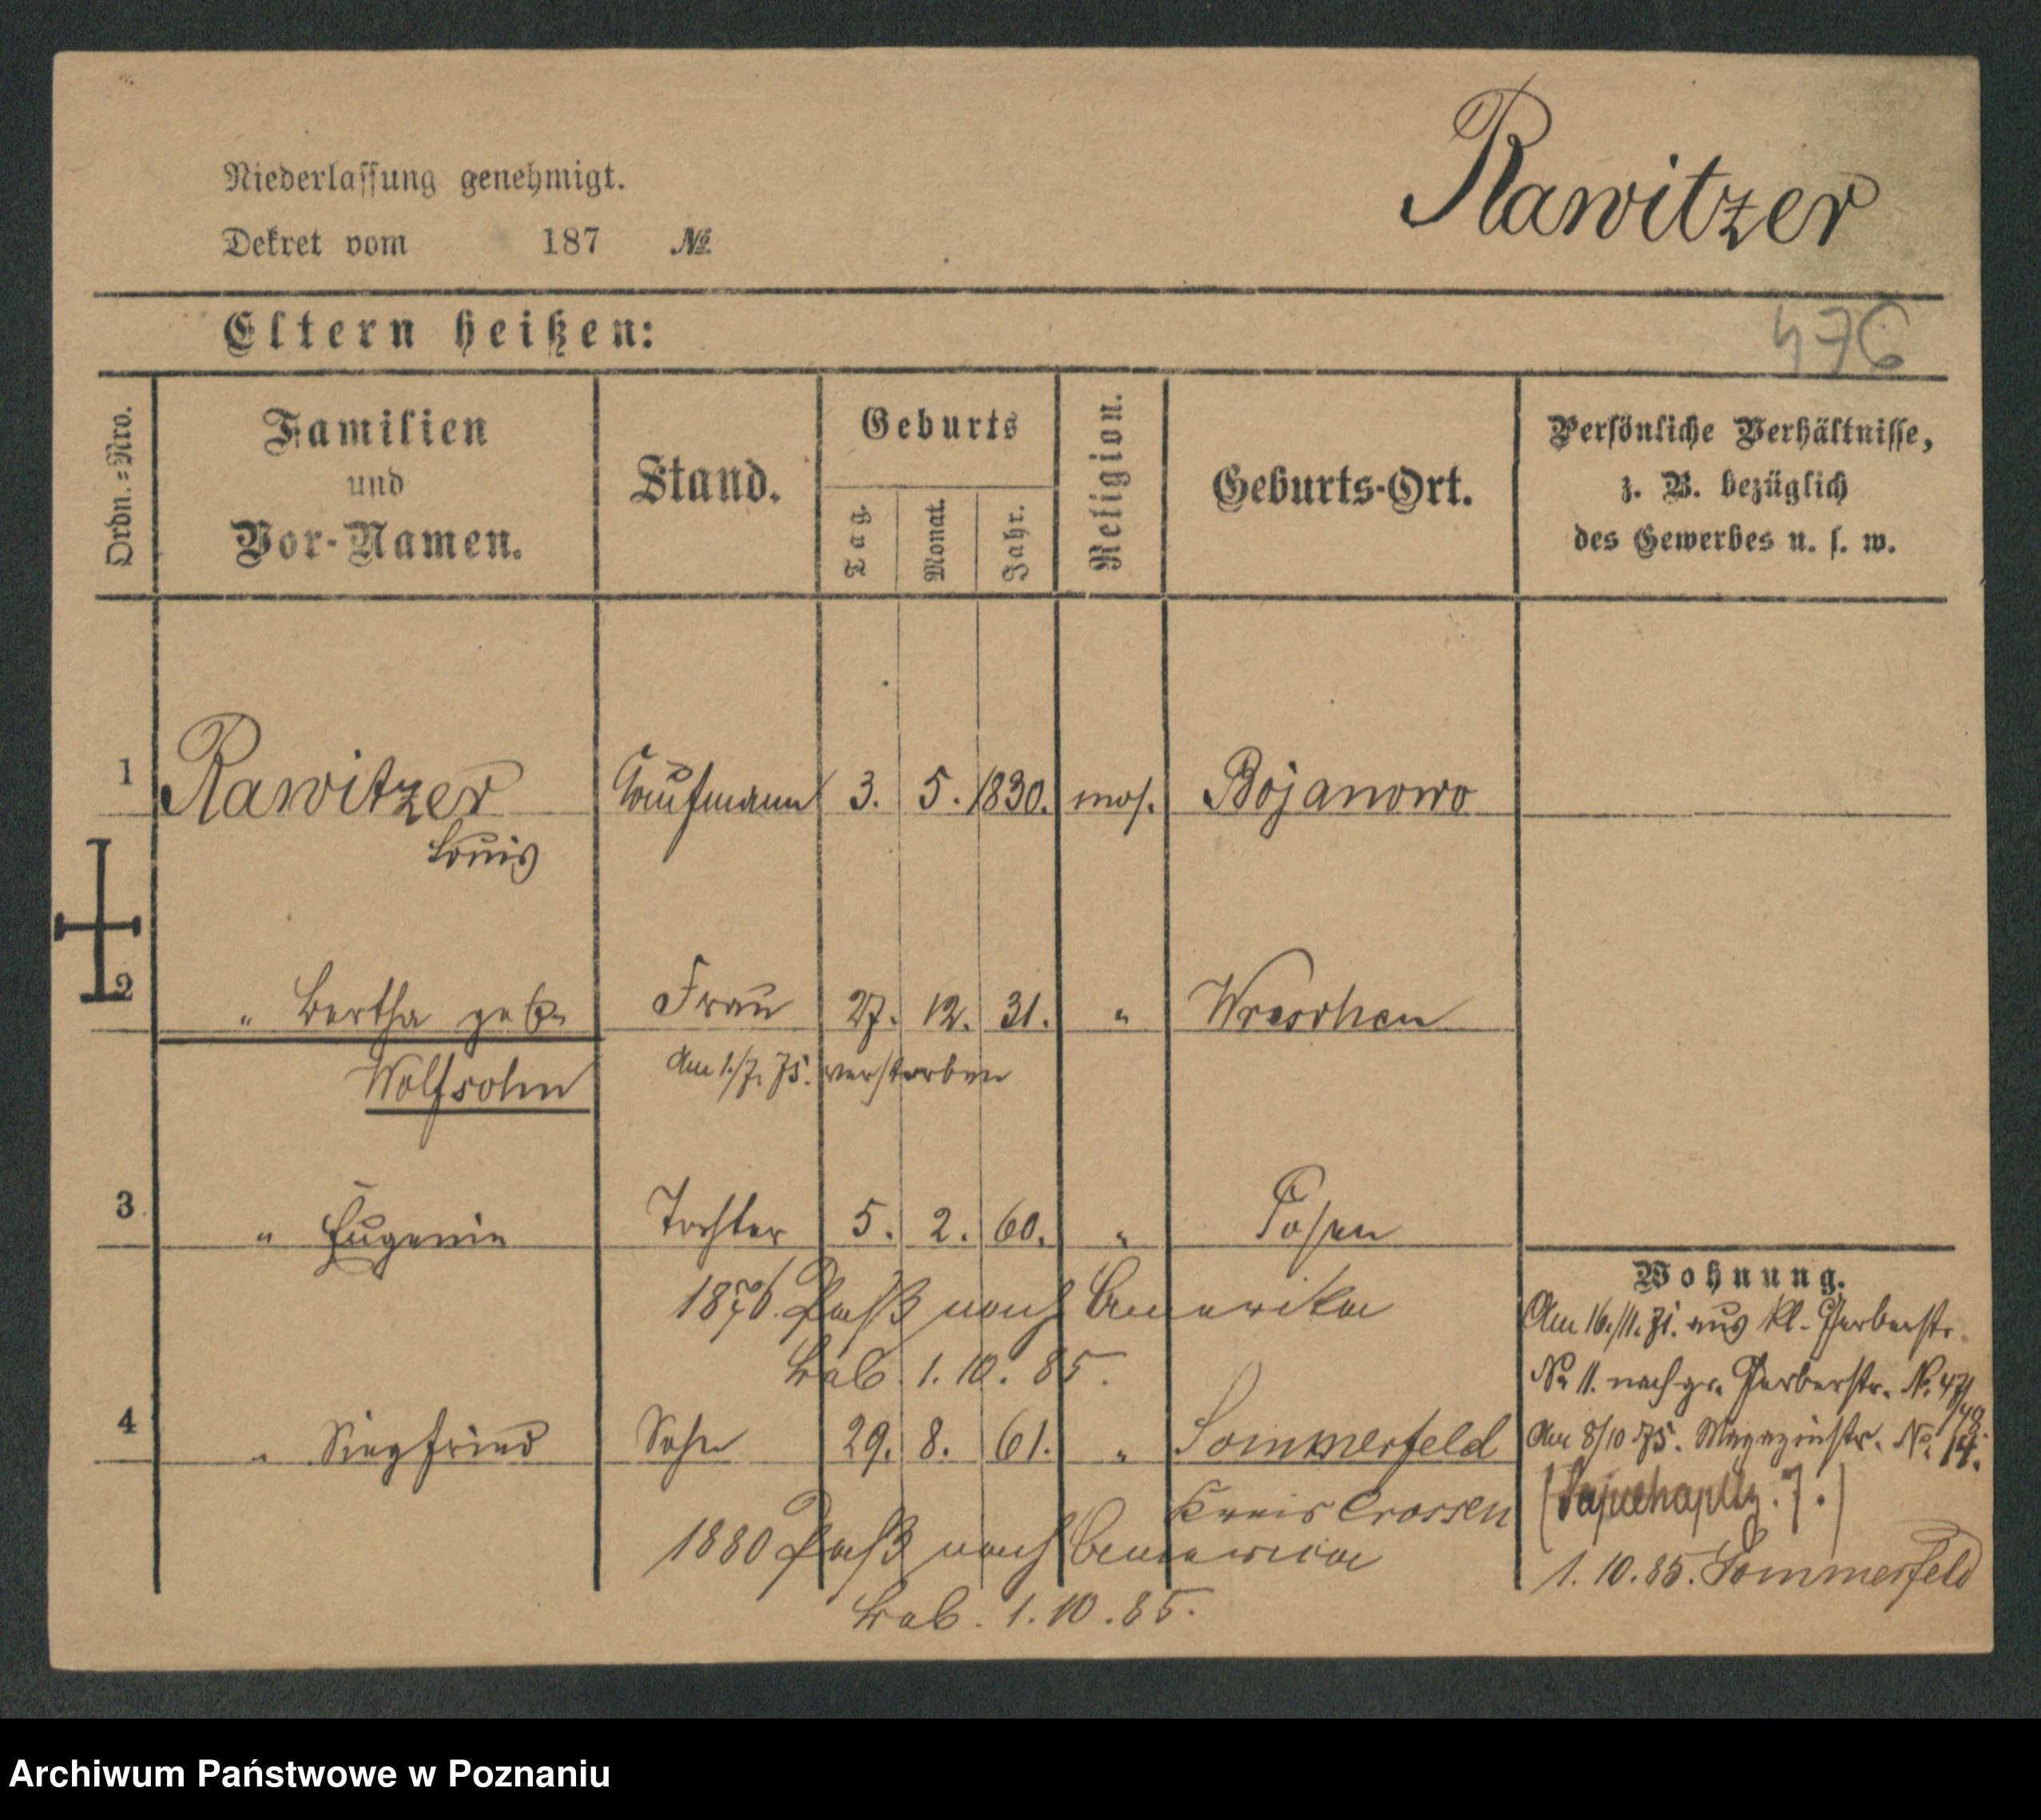 Rawitzer
Niederlassung genehmigt.
Dekret vom 187 №
476
Eltern heißen:
Ordn.=Nro. Familien und Vor-Namen. Stand. Geburts Tag. Monat. Jahr. Religion. Geburts-Ort. Persönliche Verhältnisse, z. B. bezüglich des Gewerbes u. s. w.
1 Rawitzer Kaufmann 3. 5. 1830. mos. Bojanowo
Louis
2 " Bertha geb. Frau 27. 12. 31. " Wreschen
Wolfsohn Am 1./7. 75. verstorben
3 " Eugenie Tochter 5. 2. 60. " Posen
1876. Paß nach Amerika
1.10.85.
4 " Siegfried Sohn 29. 8. 61. " Sommerfeld
Kreis Crossen
1880 Paß nach Amerika
1.10.85.
Wohnung.
Am 16./11. 71. aus kl. Gerberstr.
No 11. nach gr. Gerberstr. No. 47/48.
Am 8/10 75. Magazinstr. No. 14.
(Sapiehapltz. 7.)
1.10.85. Sommerfeld
Archiwum Państwowe w Poznaniu